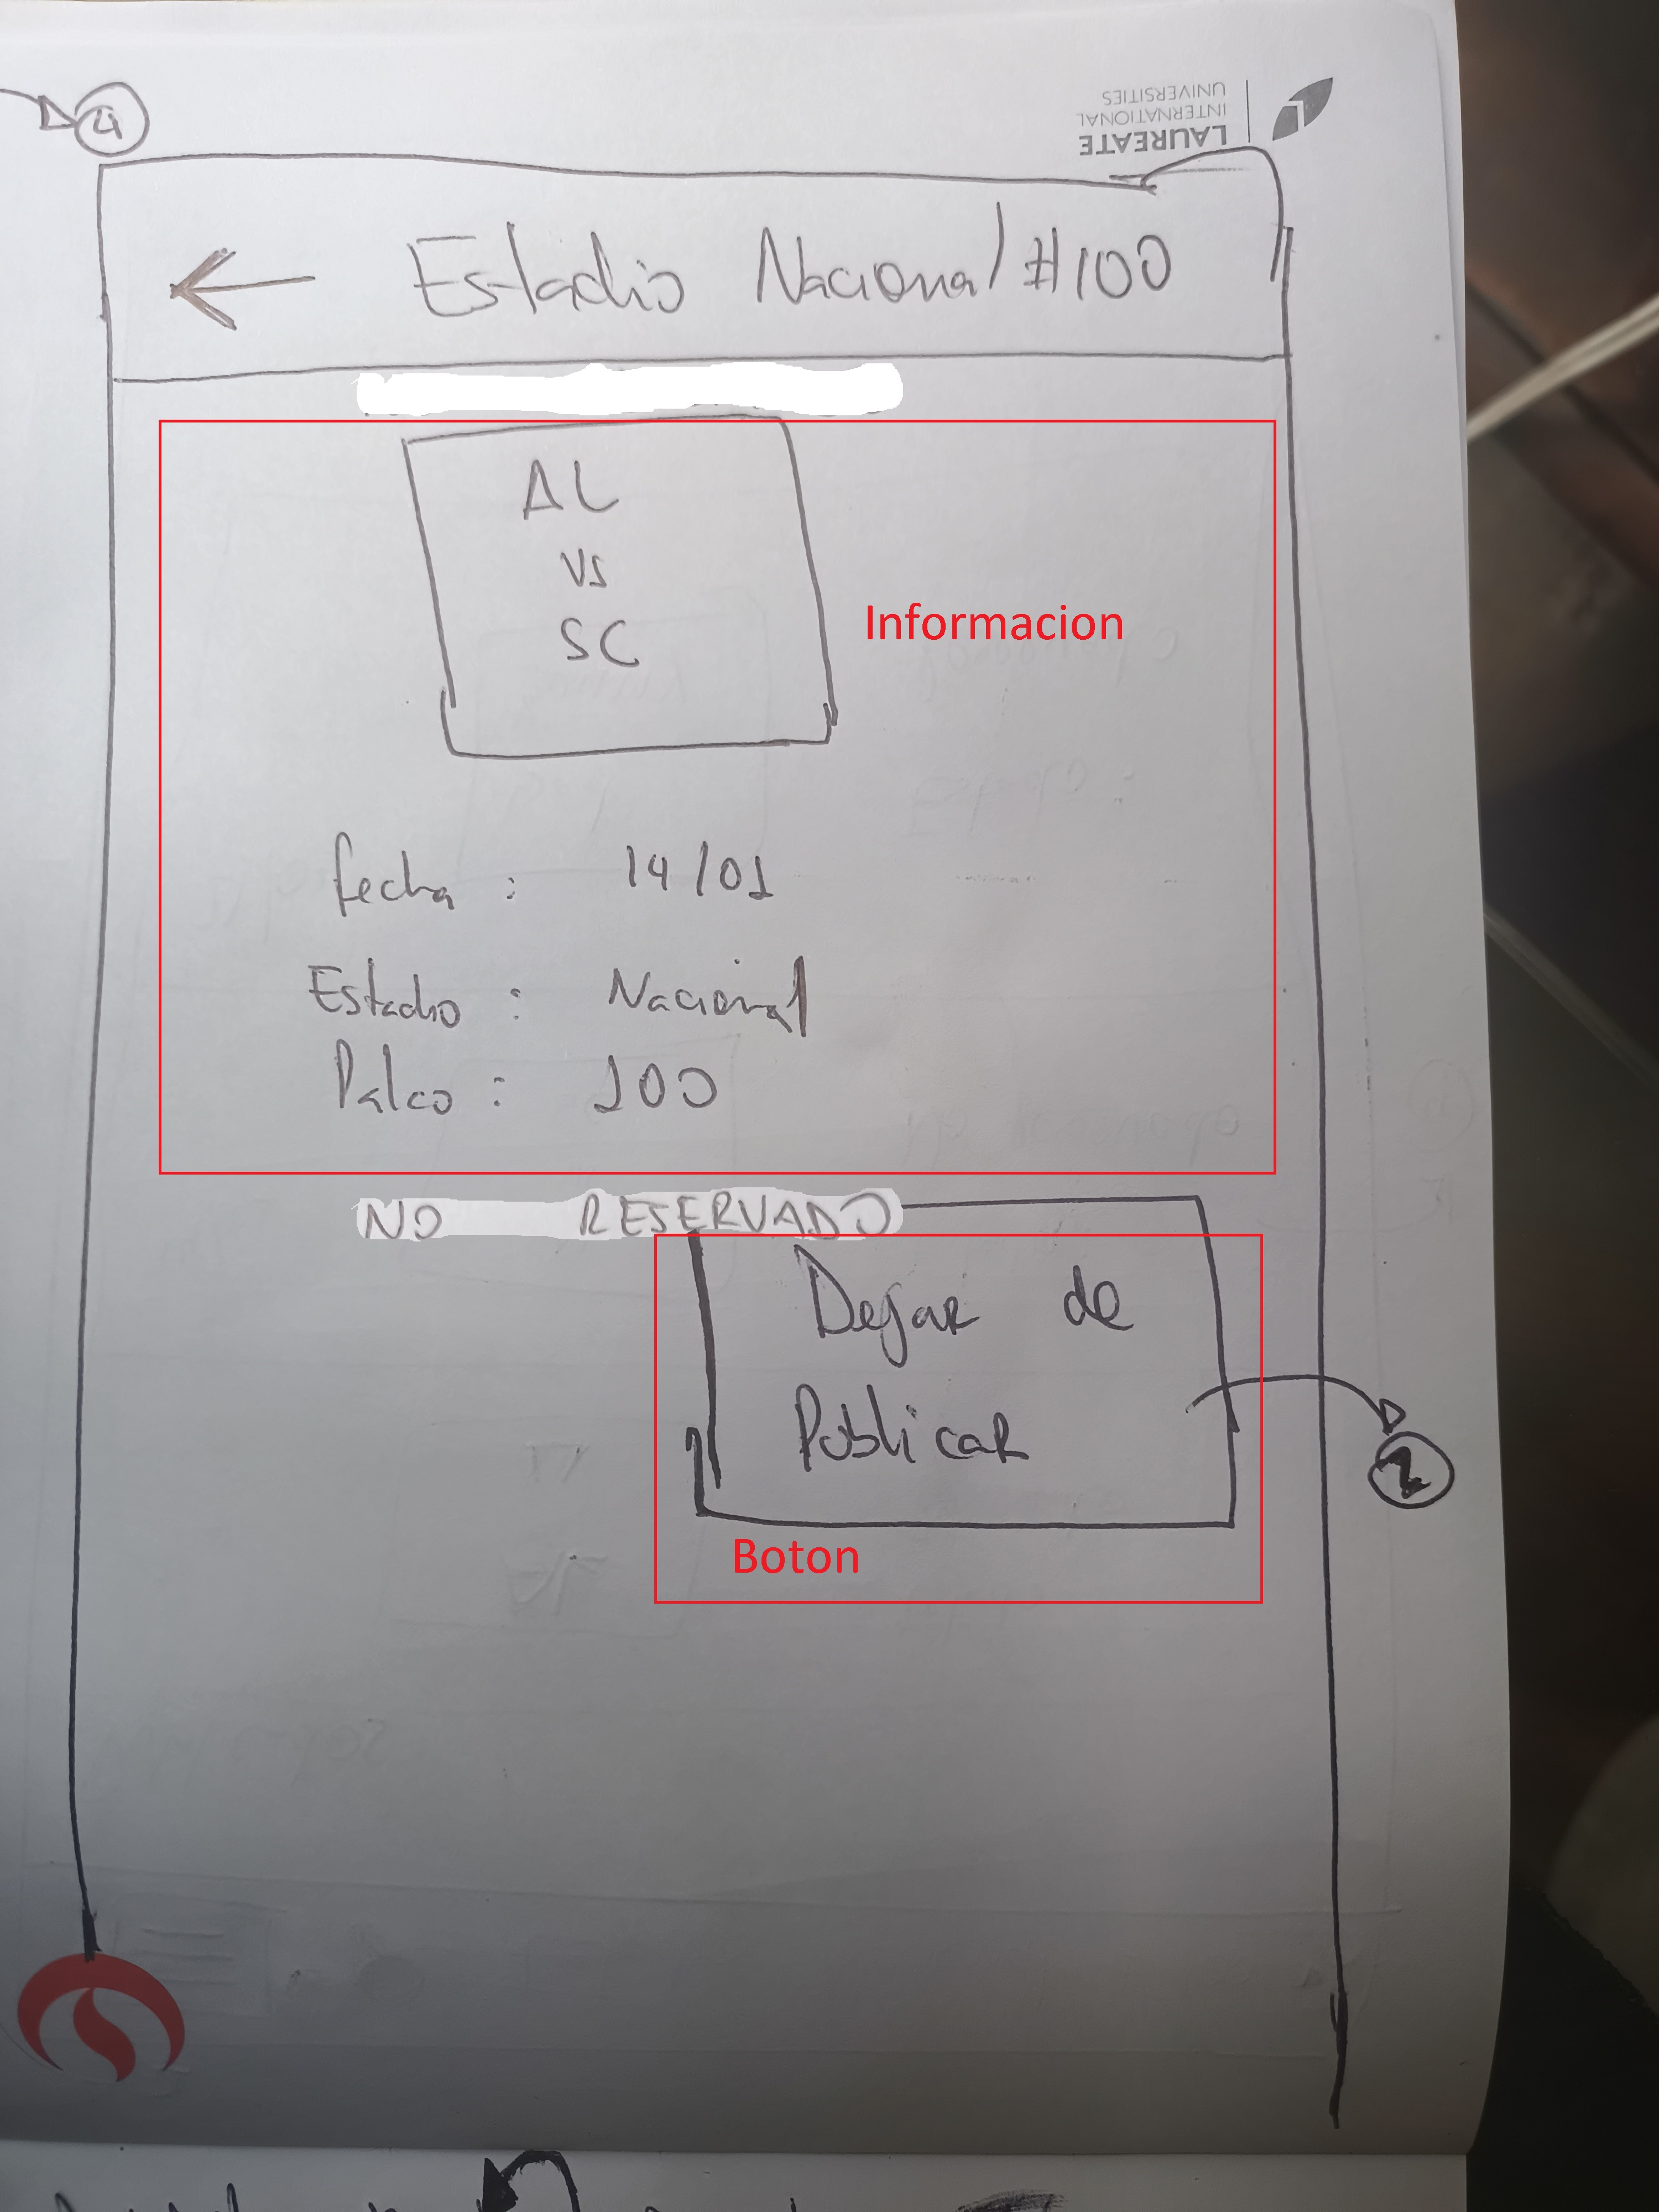 4
LAUREATE
INTERNATIONAL
UNIVERSITIES
Estadio Nacional #100
AL
vs
SC
Informacion
fecha : 14/01
Estadio : Nacional
Palco : 100
NO RESERVADO
Dejar de
Publicar
2
Boton